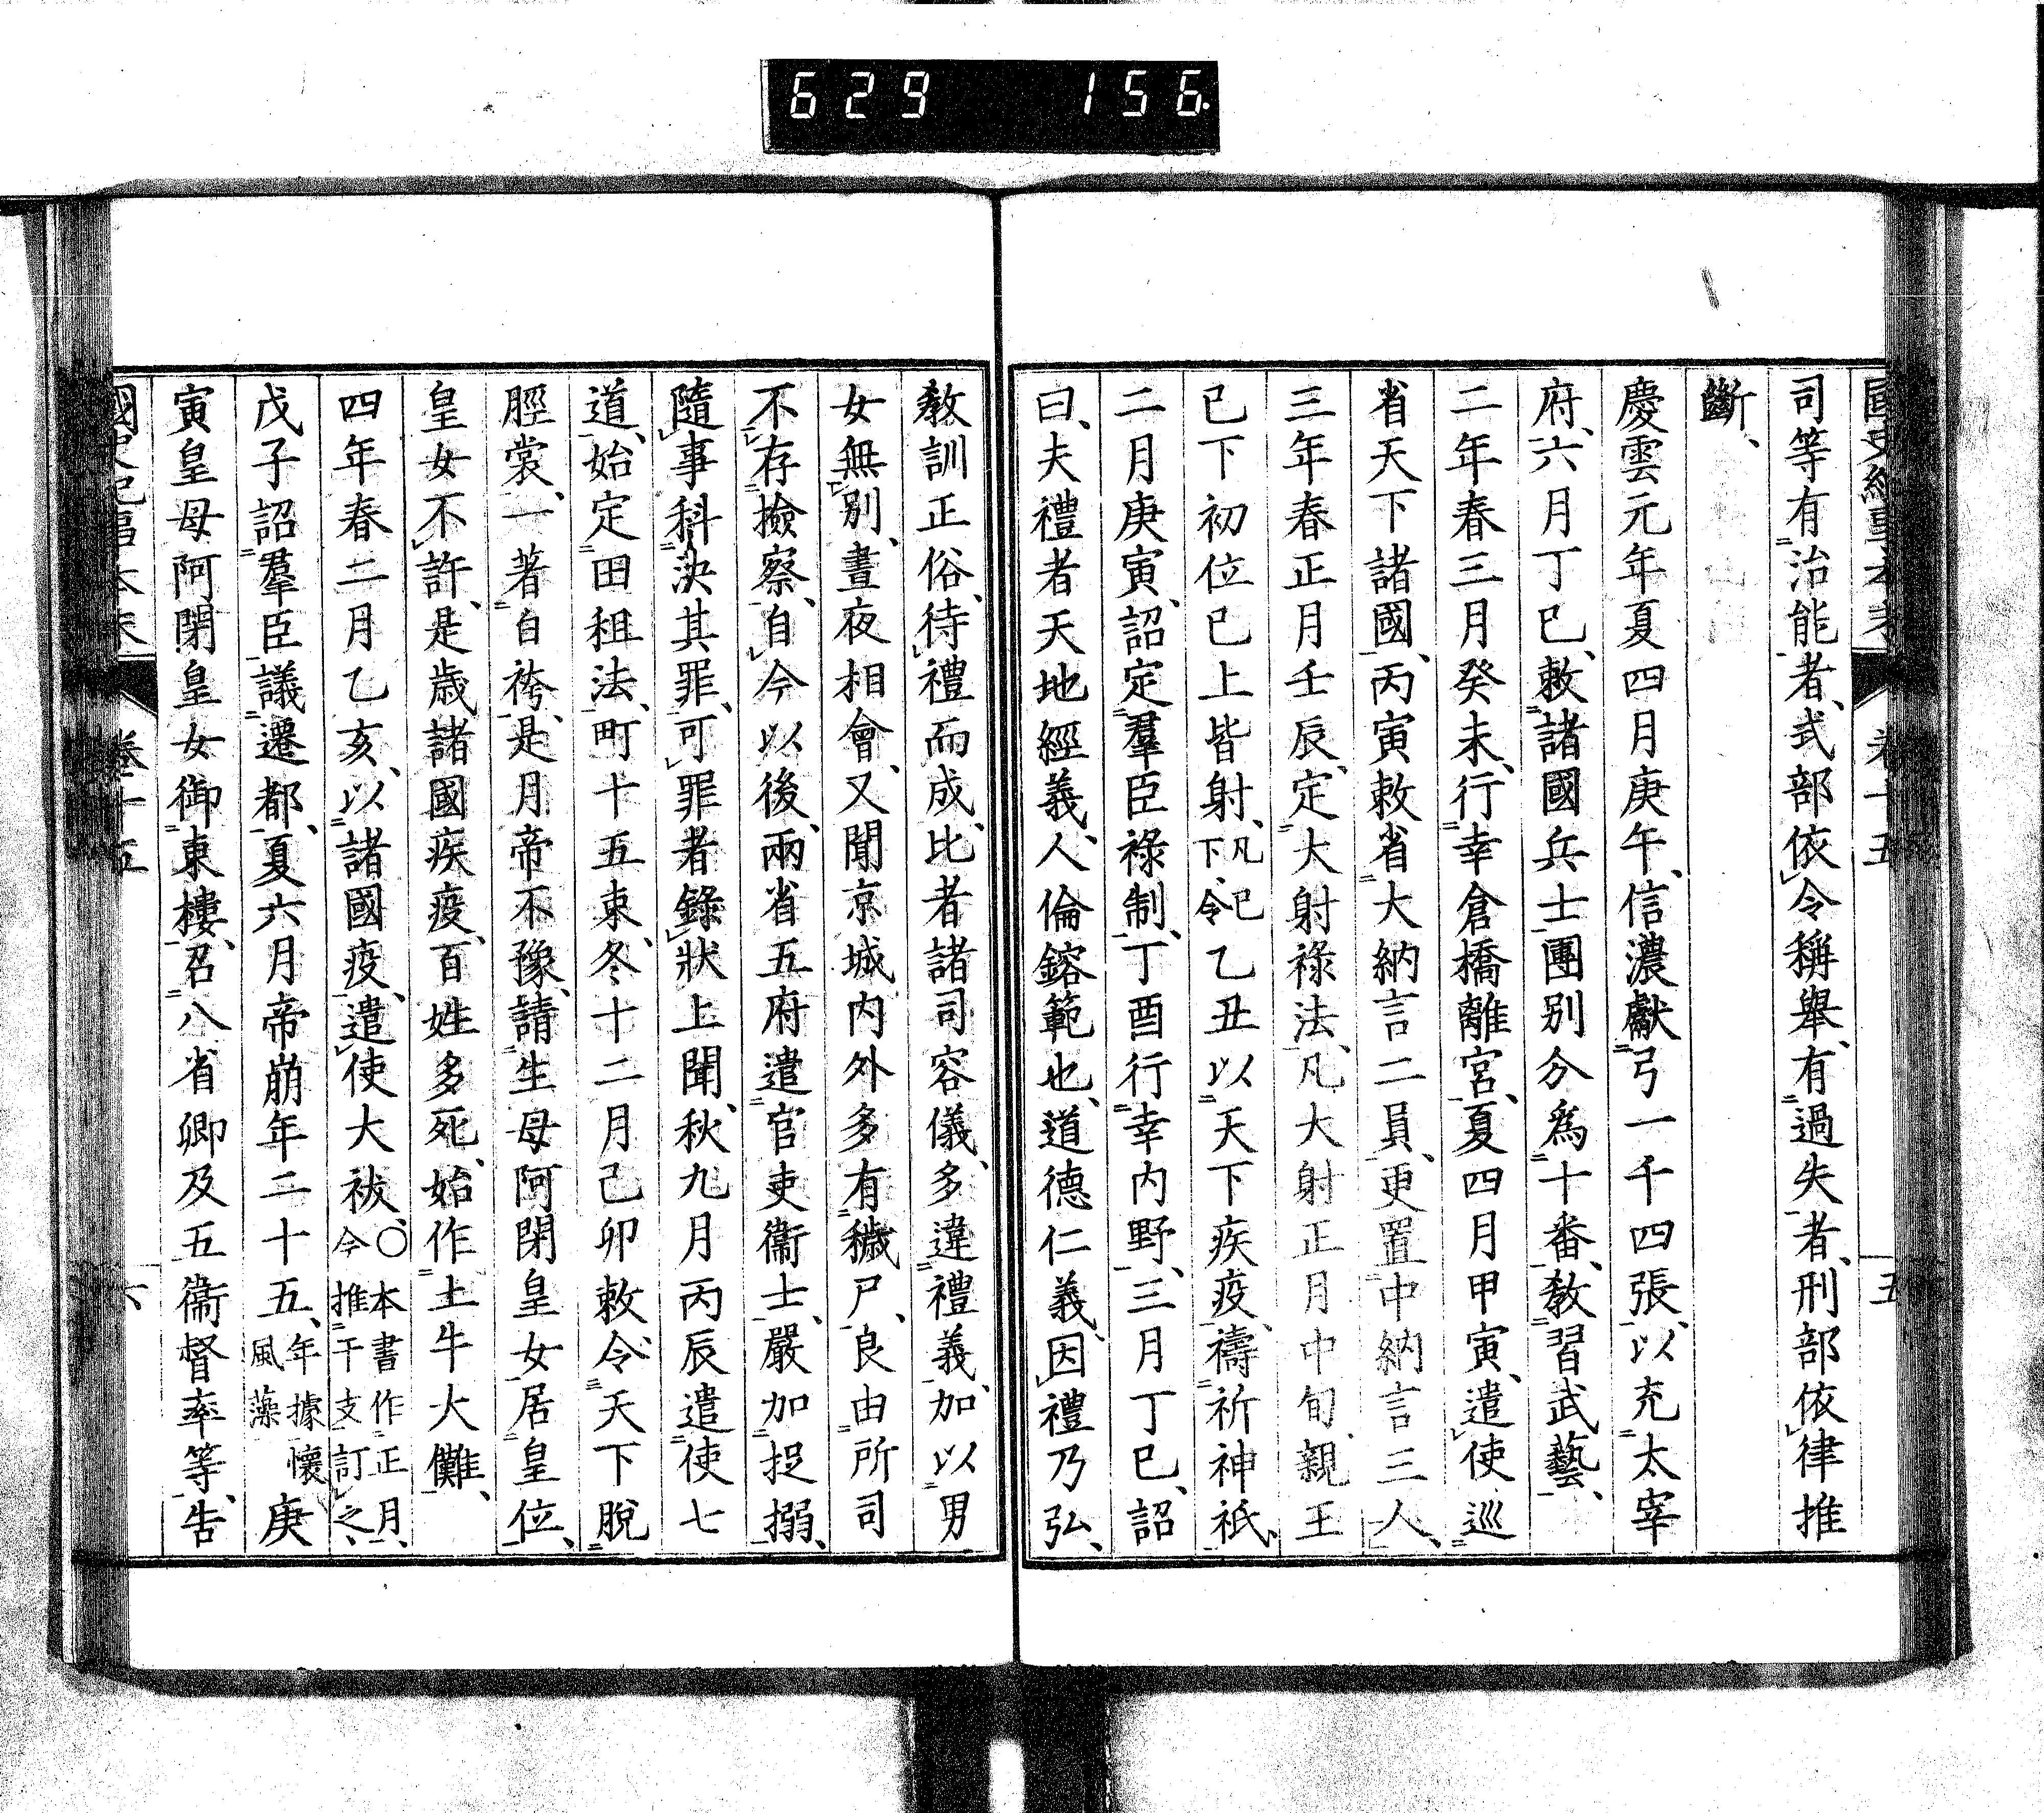 629 156
司等有治能者、式部依令稱舉、有過失者、刑部依律推
斷、
慶雲元年夏四月庚午、信濃獻弓一千四張、以充太宰
府、六月丁巳、敕諸國兵士團別分爲十番、教習武藝、
二年春三月癸未、行幸倉橋離宮、夏四月甲寅、遣使巡
省天下諸國、丙寅敕省大納言二員、更置中納言三人、
三年春正月壬辰、定大射祿法、凡大射正月中旬、親王
已下初位已上皆射、凡已下、令乙丑以天下疾疫、禱祈神祇、
二月庚寅、詔定羣臣祿制、丁酉行幸内野、三月丁巳、詔
曰、夫禮者天地經義、人倫鎔範也、道德仁義、因禮乃弘、
教訓正俗、待禮而成、比者諸司容儀、多違禮義、加以男
女無別、晝夜相會、又聞京城内外多有穢尸、良由所司
不存撿察、自今以後、兩省五府遣官吏衞士、嚴加捉搦、
隨事科決其罪、可罪者錄狀上聞、秋九月丙辰遣使七
道、始定田租法、町十五束、冬十二月己卯敕令、天下脫
脛裳、一著白袴、是月帝不豫、請生母阿閇皇女居皇位、
皇女不許、是歲諸國疾疫、百姓多死、始作土牛大儺、
四年春二月乙亥、以諸國疫、遣使大祓、○本書作正月、今推干支訂之、
戊子詔羣臣議遷都、夏六月帝崩年二十五、年據懷風藻庚
寅皇母阿閇皇女御東樓、召八省卿及五衞督率等、告
國史紀事本末 卷十五 六